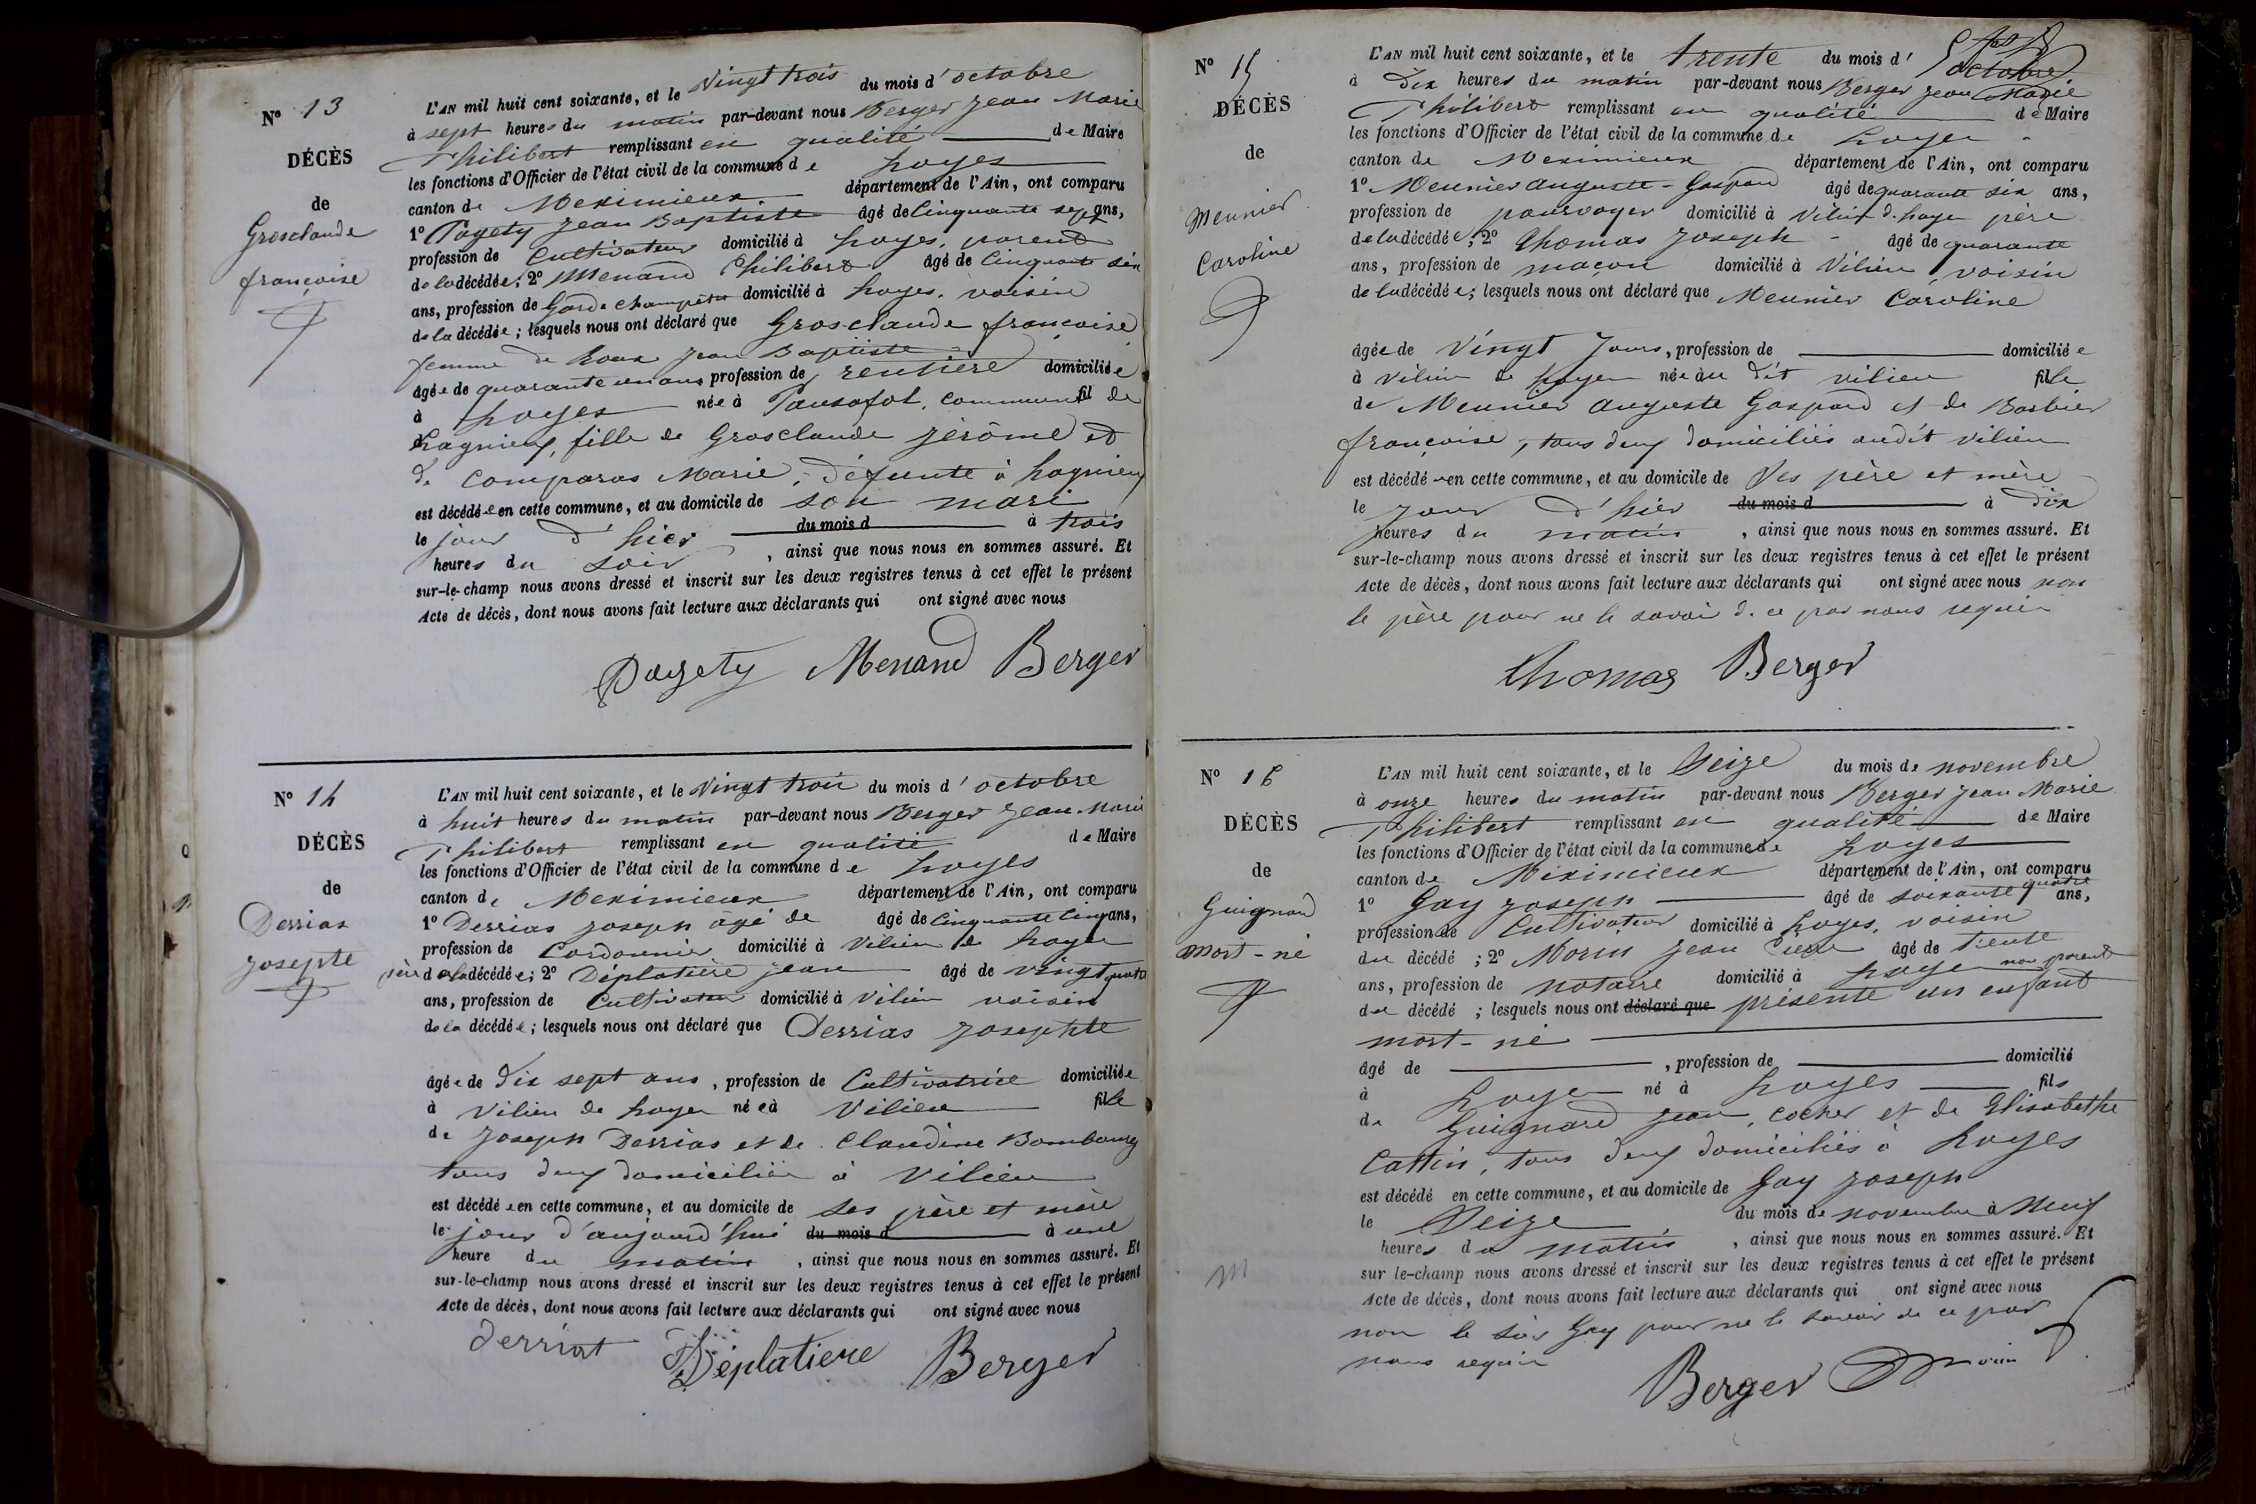 N° 13
DÉCÈS
de
Grosclaude
françoise
L'AN mil huit cent soixante, et le Vingt trois du mois d'octobre
à sept heures du matin par-devant nous Berger Jean Marie
Philibert remplissant en qualité de Maire
les fonctions d'Officier de l'état civil de la commune de Loyes
canton de Meximieux département de l'Ain, ont comparu
1° Pagety Jean Baptiste âgé de Cinquante sept ans,
profession de Cultivateur domicilié à Loyes, parent
de la décédée; 2° Menand Philibert âgé de Cinquante six
ans, profession de Garde champêtre domicilié à Loyes, voisin
de la décédée; lesquels nous ont déclaré que Grosclaude françoise
femme de Roux Jean Baptiste
âgée de quarante un ans profession de rentière domiciliée
à Loyes née à Pansafol, commune de
Lagnieu, fille de Grosclaude Jérôme et
de Comparas Marie, défunte à Lagnieu
est décédée en cette commune, et au domicile de son mari
le jour d'hier du mois d à trois
heures du soir, ainsi que nous nous en sommes assuré. Et
sur-le-champ nous avons dressé et inscrit sur les deux registres tenus à cet effet le présent
Acte de décès, dont nous avons fait lecture aux déclarants qui ont signé avec nous
Pagety Menand Berger
N° 14
DÉCÈS
de
Derrias
Josepte
L'AN mil huit cent soixante, et le Vingt trois du mois d'octobre
à huit heures du matin par-devant nous Berger Jean-Marie
Philibert remplissant en qualité de Maire
les fonctions d'Officier de l'état civil de la commune de Loyes
canton de Meximieux département de l'Ain, ont comparu
1° Derrias Joseph âgé de âgé de Cinquante Cinq ans,
profession de Cordonnier domicilié à Vilieu de Loyes
père de la décédée; 2° Déplatière Jean âgé de vingt quatre
ans, profession de Cultivateur domicilié à Vilieu voisin
de la décédée; lesquels nous ont déclaré que Derrias Josephte
âgée de dix sept ans, profession de Cultivatrice domiciliée
à Vilieu de Loyes née à Vilieu fille
de Joseph Derrias et de Claudine Bombourg
tous deux domiciliés à Vilieu
est décédée en cette commune, et au domicile de ses père et mère
le jour d'aujourd'hui du mois d à une
heure du matin, ainsi que nous nous en sommes assuré. Et
sur-le-champ nous avons dressé et inscrit sur les deux registres tenus à cet effet le présent
Acte de décès, dont nous avons fait lecture aux déclarants qui ont signé avec nous
derriat Déplatiere Berger
N° 15
DÉCÈS
de
Meunier
Caroline
L'AN mil huit cent soixante, et le trente du mois d'octobre
à dix heures du matin par-devant nous Berger Jean Marie
Philibert remplissant en qualité de Maire
les fonctions d'Officier de l'état civil de la commune de Loyes
canton de Meximieux département de l'Ain, ont comparu
1° Meunier auguste-Gaspard âgé de quarante six ans,
profession de pourvoyer domicilié à Vilieu de Loyes père
de la décédée; 2° Thomas Joseph âgé de quarante
ans, profession de maçon domicilié à Vilieu voisin
de la décédée; lesquels nous ont déclaré que Meunier Caroline
âgée de Vingt Jours, profession de domiciliée
à Vilieu de Loyes née au dit vilieu fille
de Meunier auguste Gaspard et de Barbier
françoise, tous deux domiciliés audit vilieu
est décédée en cette commune, et au domicile de ses père et mère
le jour d'hier du mois d à dix
heures du matin, ainsi que nous nous en sommes assuré. Et
sur-le-champ nous avons dressé et inscrit sur les deux registres tenus à cet effet le présent
Acte de décès, dont nous avons fait lecture aux déclarants qui ont signé avec nous non
le père pour ne le savoir de ce par nous requis
Thomas Berger
N° 16
DÉCÈS
de
Guignard
mort-né
L'AN mil huit cent soixante, et le Seize du mois de novembre
à onze heures du matin par-devant nous Berger Jean Marie
Philibert remplissant en qualité de Maire
les fonctions d'Officier de l'état civil de la commune de Loyes
canton de Méximieux département de l'Ain, ont comparu
1° Gay Joseph âgé de soixante quatre ans,
profession de Cultivateur domicilié à Loyes, voisin
du décédé; 2° Morin Jean âgé de trente
ans, profession de notaire domicilié à Loyes non parent
du décédé; lesquels nous ont déclaré que présenté un enfant
mort-né
âgé de, profession de domicilié
à Loyes né à Loyes fils
de Guignard Jean, cocher et de Elisabethe
Cattin, tous deux domiciliés à Loyes
est décédé en cette commune, et au domicile de Gay Joseph
le Seize du mois de novembre à Neuf
heures du matin, ainsi que nous nous en sommes assuré. Et
sur le-champ nous avons dressé et inscrit sur les deux registres tenus à cet effet le présent
Acte de décès, dont nous avons fait lecture aux déclarants qui ont signé avec nous
non le Sier Gay pour ne le savoir de ce par
nous requis
Berger Morin